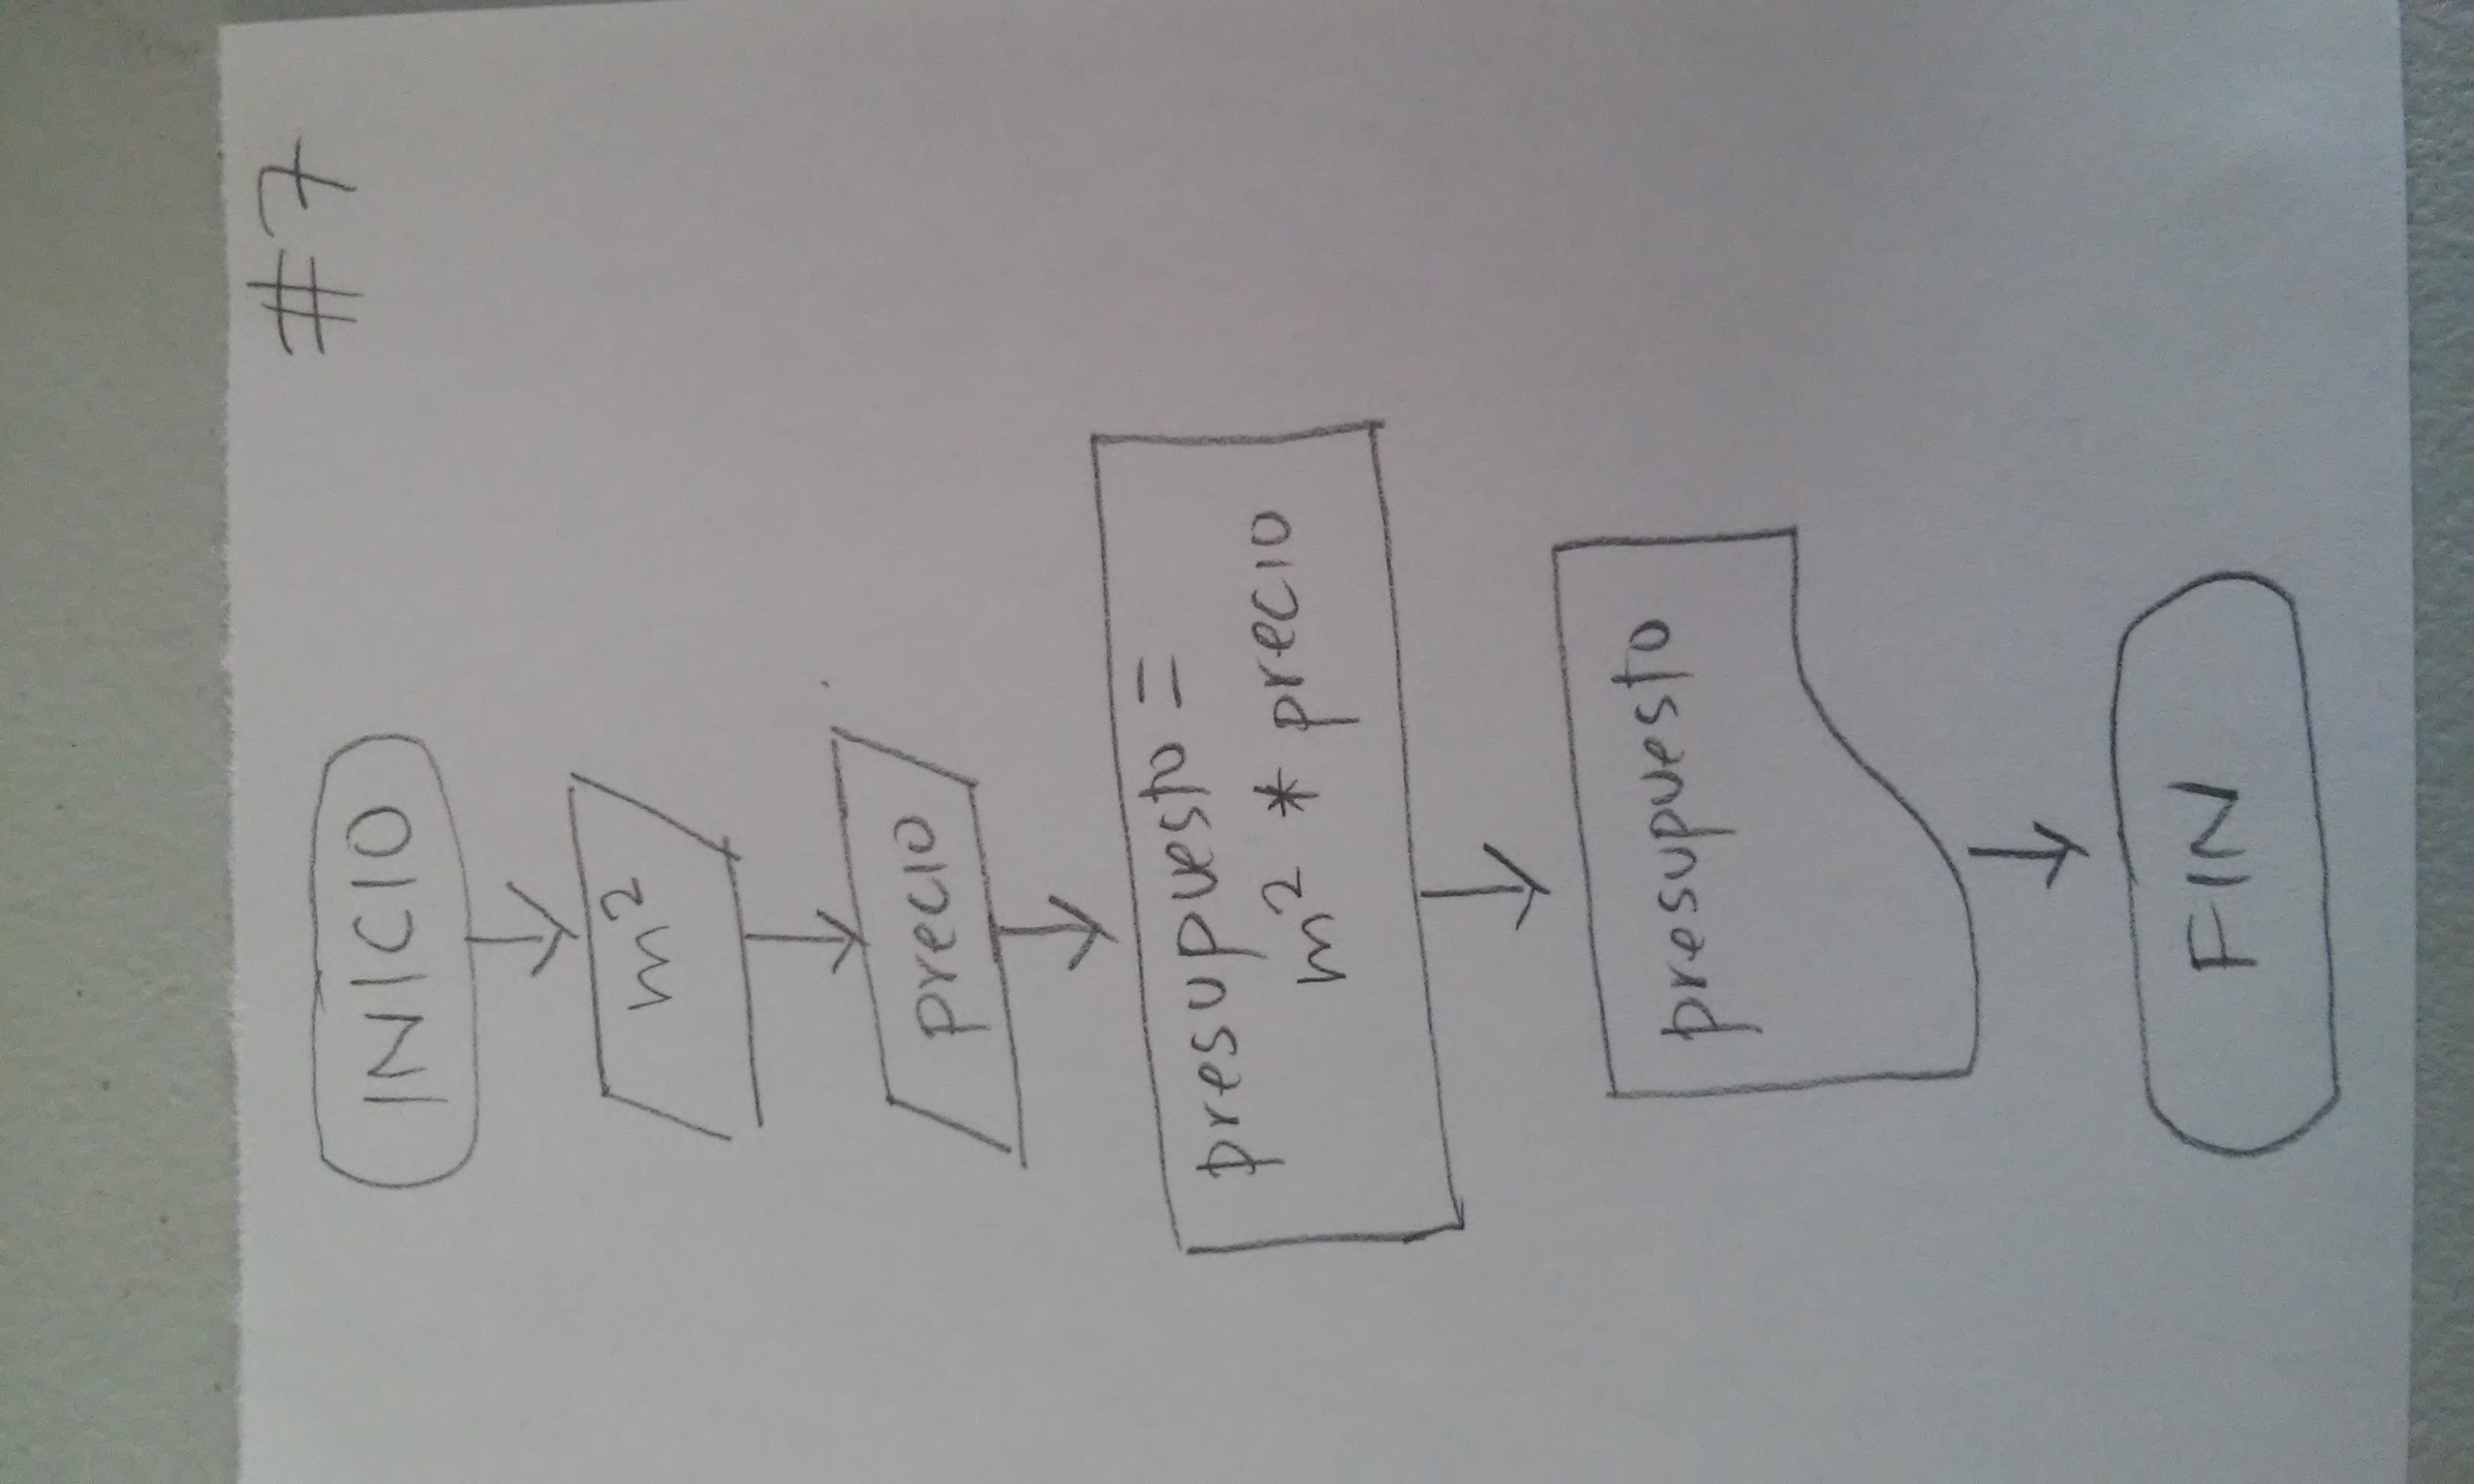 #7
INICIO
m²
precio
presupuesto =
m² * precio
presupuesto
FIN